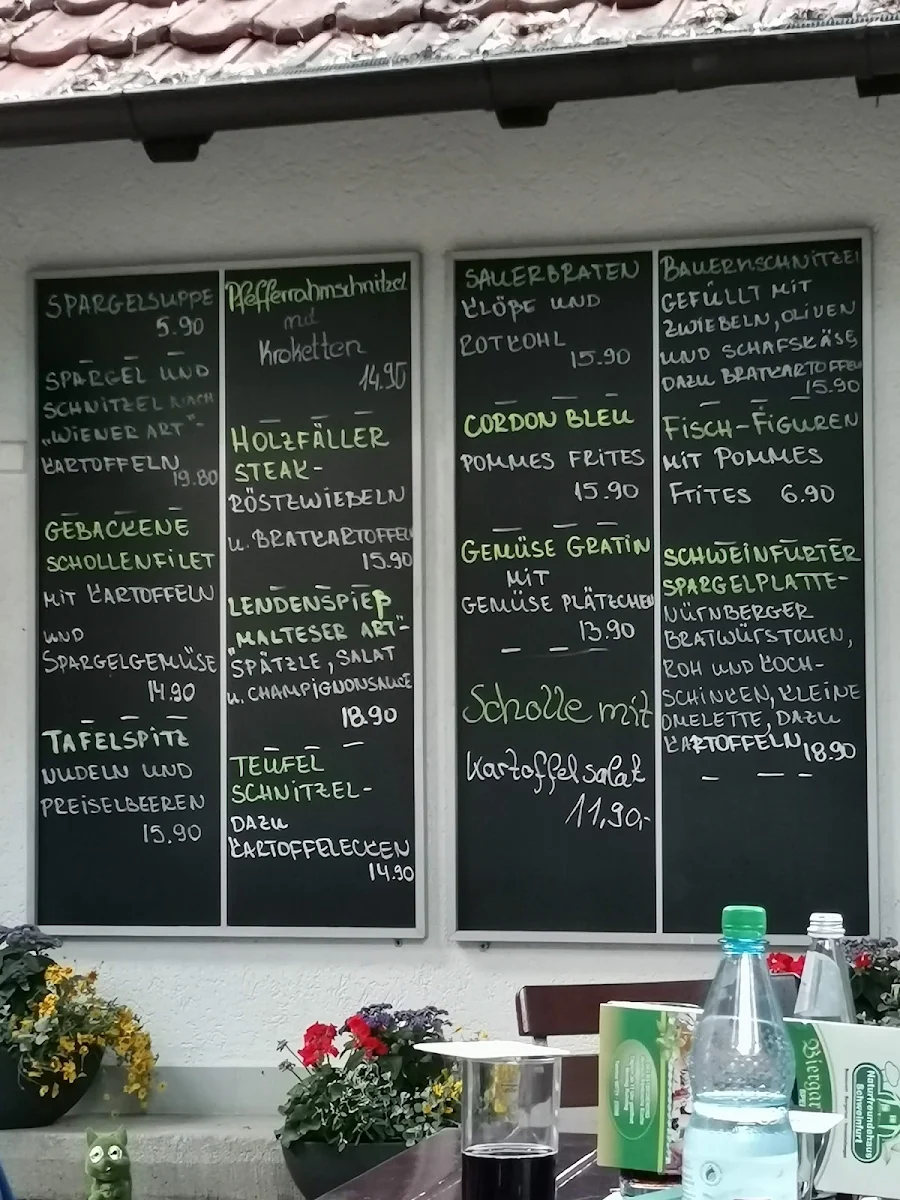 SPARGELSUPPE
5.90
SPARGEL UND
SCHNITZEL NACH
„WIENER ART"-
KARTOFFELN
19.80
GEBACKENE
SCHOLLENFILET
MIT KARTOFFELN
UND
SPARGELGEMÜSE
14.90
TAFELSPITZ
NUDELN UND
PREISELBEEREN
15.90
Pfefferrahmschnitzel
mit
Kroketten
14.90
HOLZFÄLLER
STEAK-
RÖSTZWIEBELN
u. BRATKARTOFFELN
15.90
LENDENSPIEß
"MALTESER ART"-
SPÄTZLE, SALAT
u. CHAMPIGNONSAUCE
18.90
TEUFEL
SCHNITZEL-
DAZU
KARTOFFELECKEN
14.90
SAUERBRATEN
KLÖßE UND
ROTKOHL
15.90
CORDON BLEU
POMMES FRITES
15.90
GEMÜSE GRATIN
MIT
GEMÜSE PLÄTZCHEN
13.90
Scholle mit
Kartoffelsalat
11,90,-
BAUERNSCHNITZEL
GEFÜLLT MIT
ZWIEBELN, OLIVEN
UND SCHAFSKÄSE
DAZU BRATKARTOFFELN
15.90
FISCH-FIGUREN
MIT POMMES
FRITES 6.90
SCHWEINFURTER
SPARGELPLATTE-
NÜRNBERGER
BRATWÜRSTCHEN,
ROH UND KOCH-
SCHINKEN, KLEINE
OMELETTE, DAZU
KARTOFFELN
18.90
Biergar
Naturfreundehaus
Schweinfurt